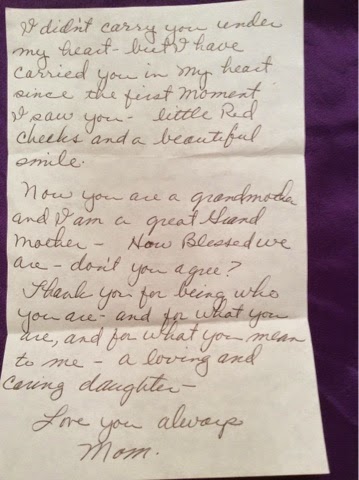 I didn't carry you under
my heart - but I have
carried you in my heart
since the first moment
I saw you - little Red
cheeks and a beautiful
smile.
Now you are a grandmother
and I am a great Grand
Mother - How Blessed we
are - don't you agree?
Thank you for being who
you are - and for what you
are, and for what you mean
to me - a loving and
caring daughter -
Love you always
Mom.